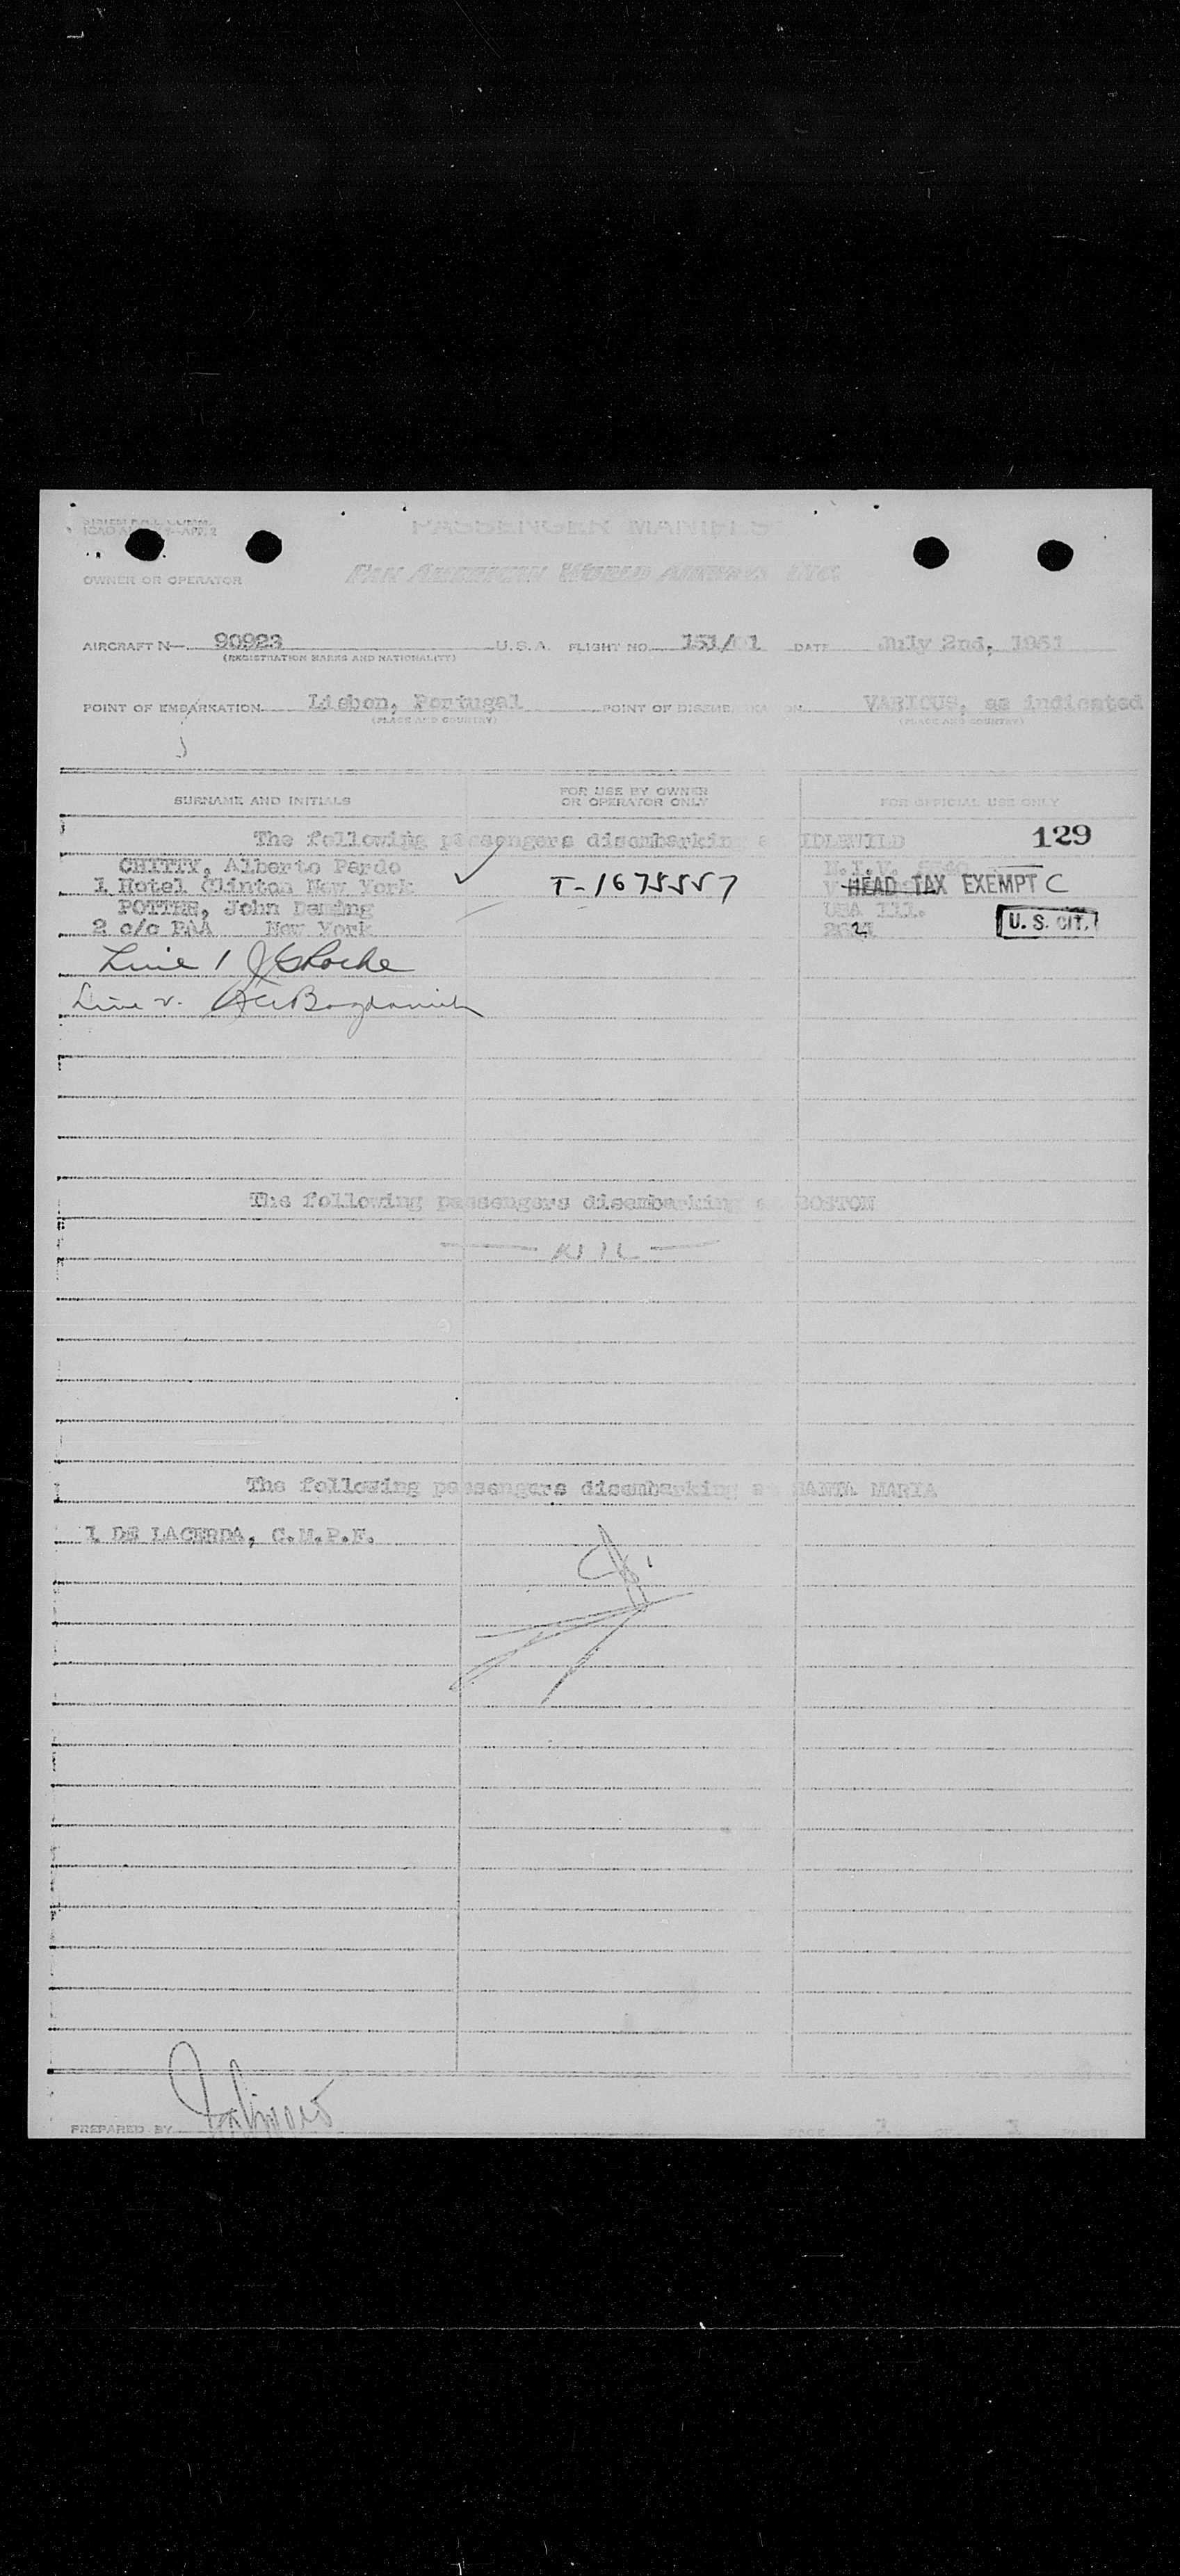 PASSENGER MANIFES
OWNER OR OPERATOR PAN AMERICAN WORLD AIRWAYS
AIRCRAFT N— 90923 U.S.A. FLIGHT NO. 151/ 1 DATE July 2nd, 1951
(REGISTRATION MARKS AND NATIONALITY)
POINT OF EMBARKATION Lisbon, Portugal POINT OF DISEMBARKATION VARIOUS, as indicated
(PLACE AND COUNTRY) (PLACE AND COUNTRY)
SURNAME AND INITIALS FOR USE BY OWNER OR OPERATOR ONLY FOR OFFICIAL USE ONLY
The following passengers disembarking a IDLEWILD 129
CHITTY, Alberto Pardo N.I.V.
1 Hotel Clinton New York ✓ T-1675557 HEAD TAX EXEMPT C
POTTER, John Deming USA 111.
2 c/o PAA New York U. S. CIT.
Line 1
Line 2.
The following passengers disembarking a BOSTON
— NIL —
The following passengers disembarking a SANTA MARIA
1 DE LACERDA, C.M.P.F.
PREPARED BY PAGE 1 OF 1 PAGES